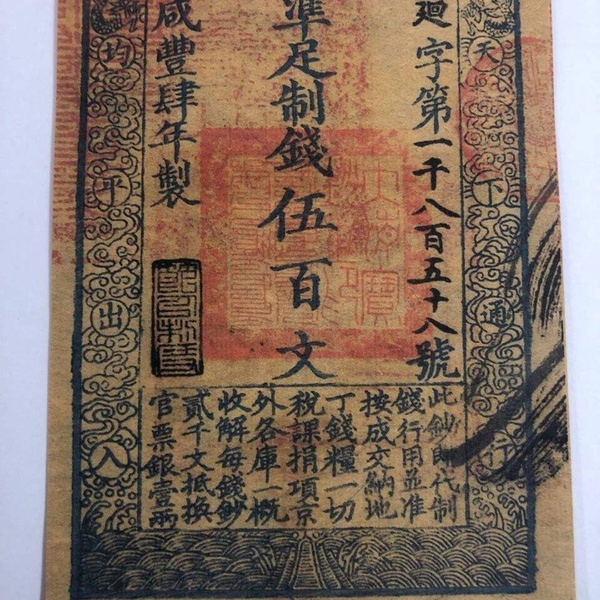 廻字第一千八百五十八號
準足制錢伍百文
咸豐肆年製
天下通行
均平出入
此鈔即代制
錢行用並准
按成交納地
丁錢糧一切
稅課捐項京
外各庫一概
收解每錢鈔
貳千文抵換
官票銀壹兩